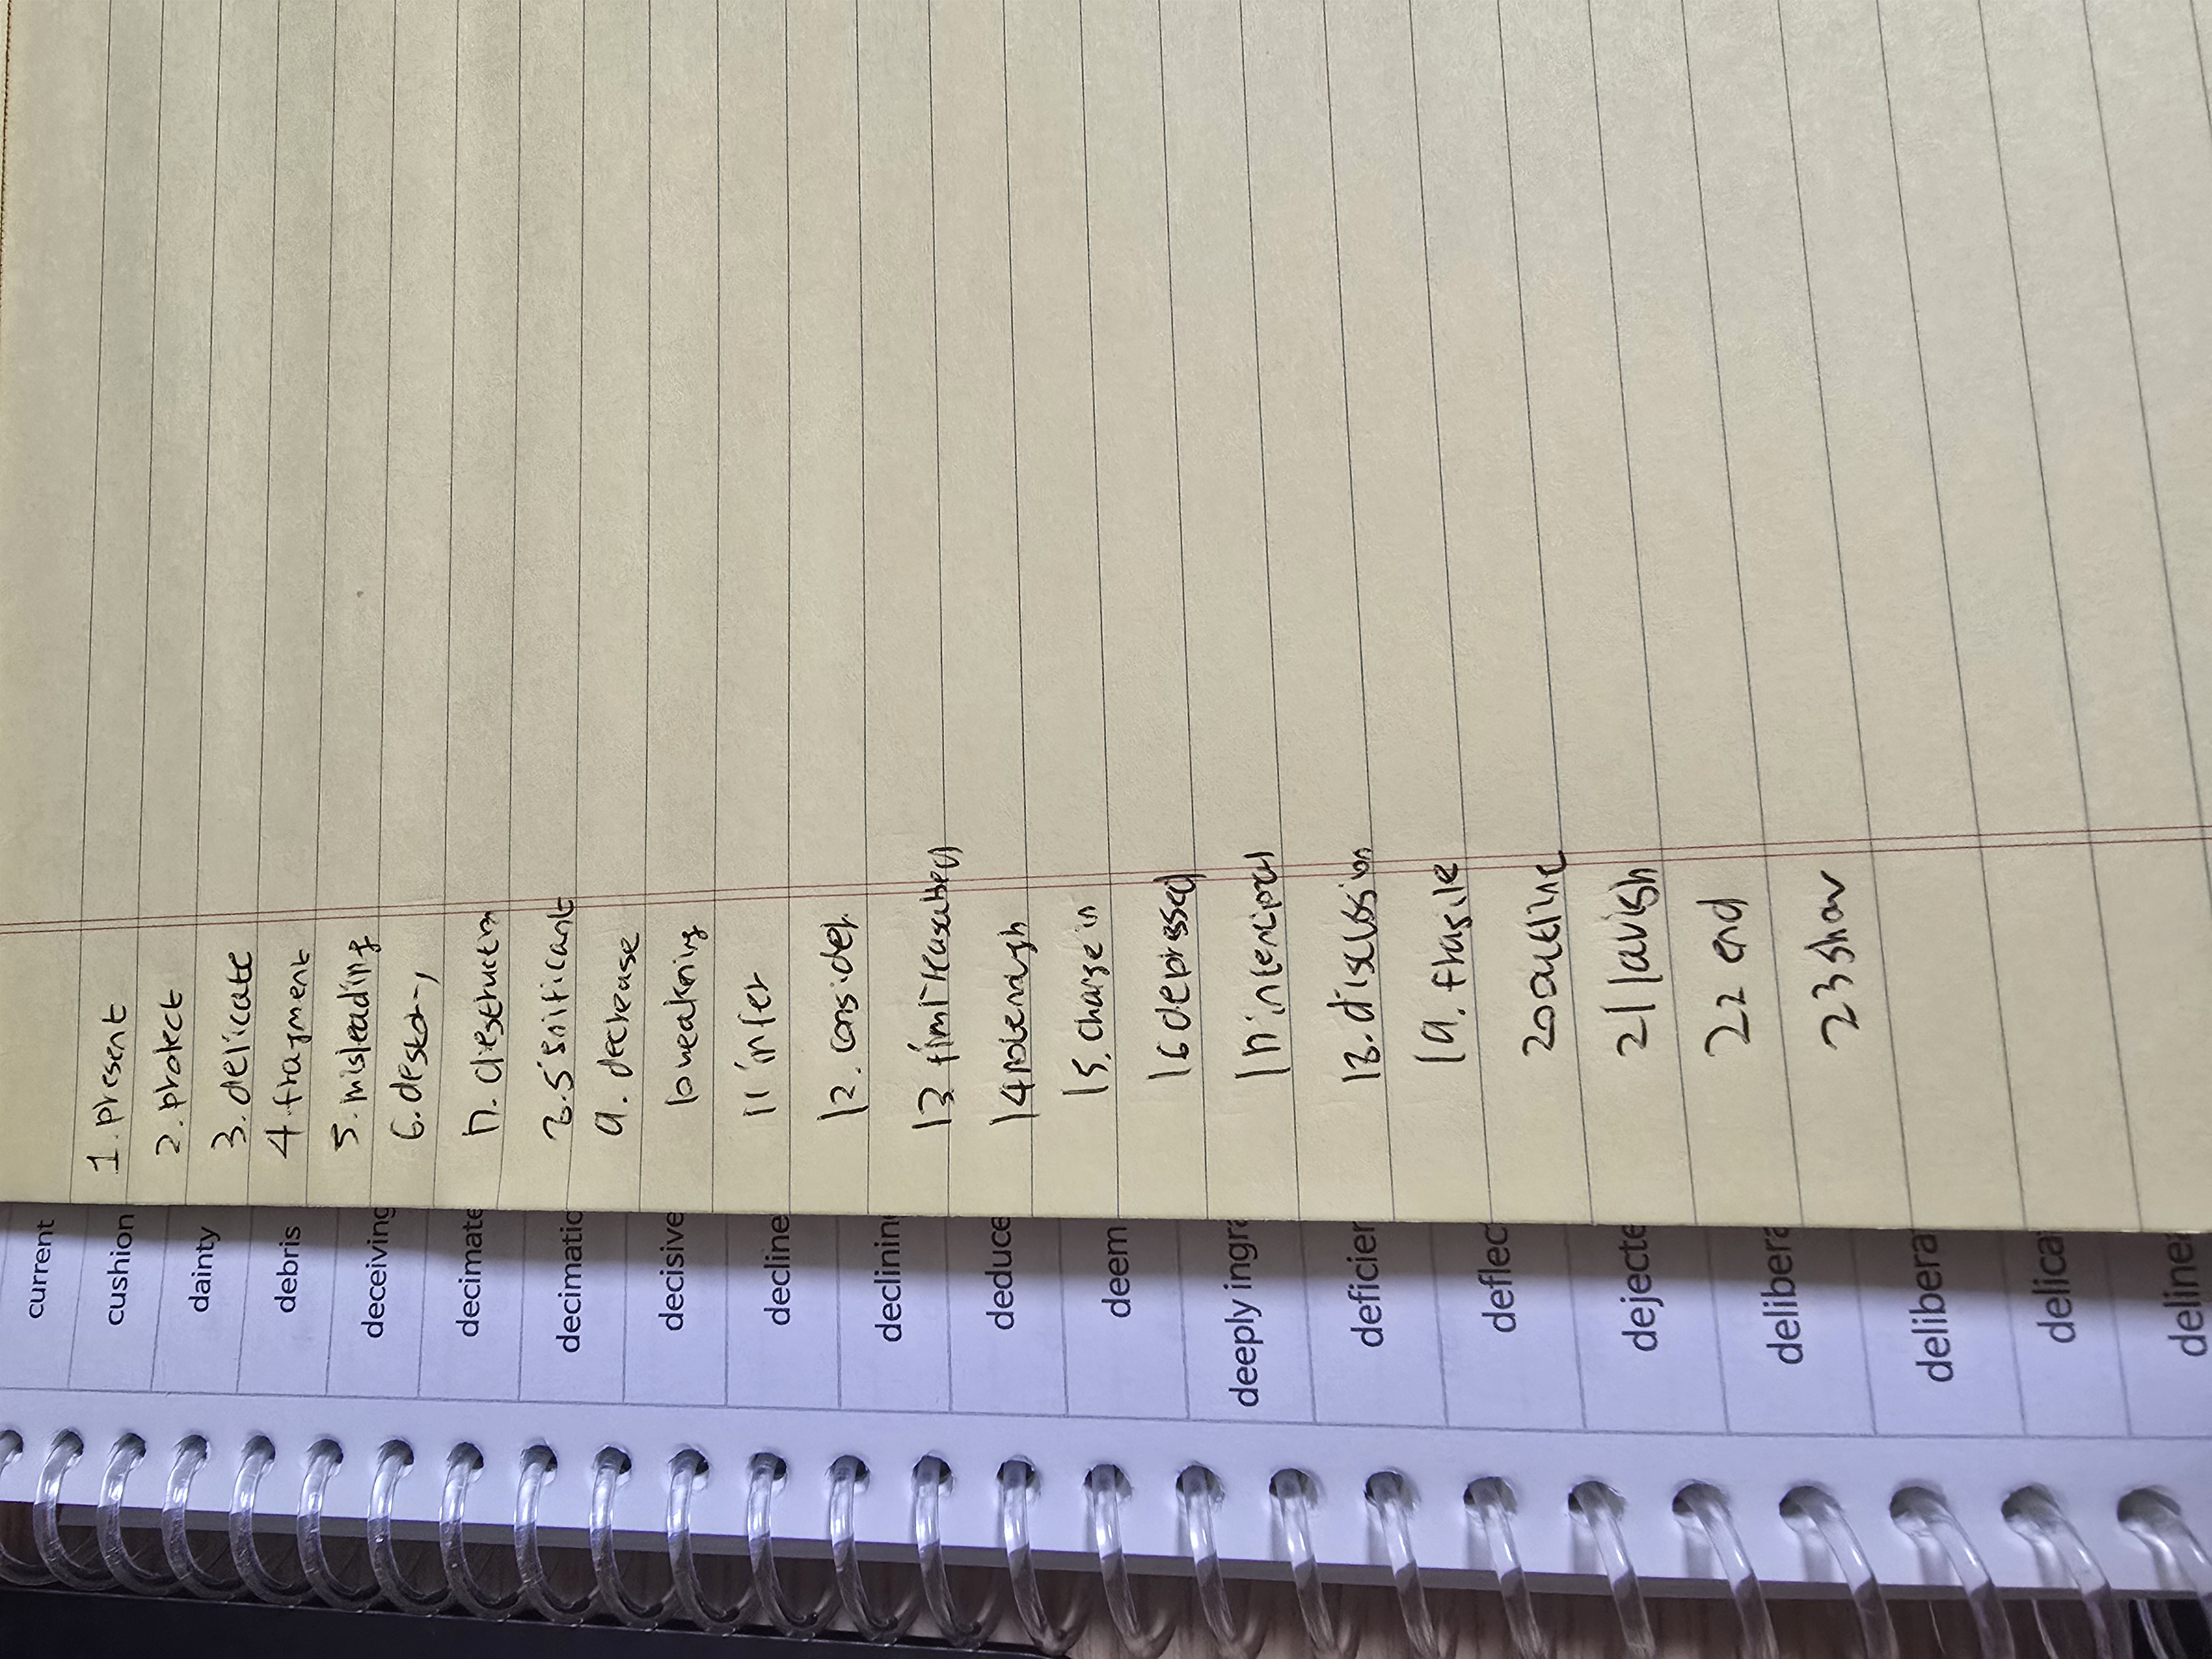 current
cushion
dainty
debris
deceiving
decimate
decimatio
decisive
decline
declinin
deduce
deem
deeply ingra
deficien
deflec
dejecte
delibera
delibera
delica
deline
1. present
2. protect
3. delicate
4 fragment
5. misleading
6. destory
7. destructn
8. significant
9. decrease
10 weakening
11 infer
12. consider
13. firmly
14
15. change in
16 depressed
17 intentional
18. discussion
19. fragile
20 outline
21 lavish
22 end
23 show